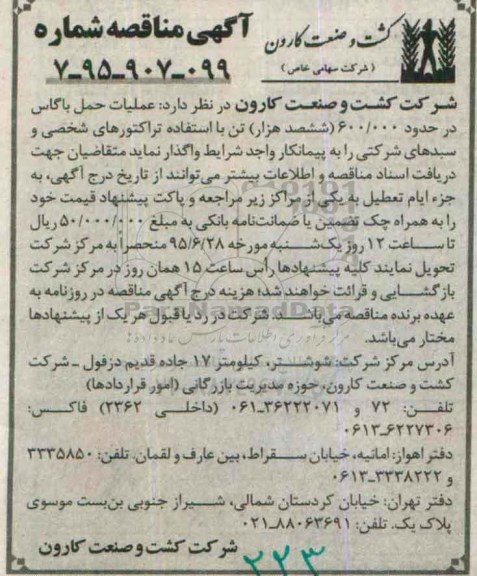 آگهی مناقصه شماره
۷-۹۵-۹۰۷-۰۹۹
کشت و صنعت کارون
(شرکت سهامی خاص)
شرکت کشت و صنعت کارون در نظر دارد: عملیات حمل باگاس
در حدود ۶۰۰/۰۰۰ (ششصد هزار) تن با استفاده تراکتورهای شخصی و
سبدهای شرکتی را به پیمانکار واجد شرایط واگذار نماید متقاضیان جهت
دریافت اسناد مناقصه و اطلاعات بیشتر می‌توانند از تاریخ درج آگهی، به
جزء ایام تعطیل به یکی از مراکز زیر مراجعه و پاکت پیشنهاد قیمت خود
را به همراه چک تضمین یا ضمانت‌نامه بانکی به مبلغ ۵۰/۰۰۰/۰۰۰ ریال
تا ساعت ۱۲ روز یک‌شنبه مورخه ۹۵/۶/۲۸ منحصراً به مرکز شرکت
تحویل نمایند کلیه پیشنهادها رأس ساعت ۱۵ همان روز در مرکز شرکت
بازگشایی و قرائت خواهند شد؛ هزینه درج آگهی مناقصه در روزنامه به
عهده برنده مناقصه می‌باشد. شرکت در رد یا قبول هر یک از پیشنهادها
مختار می‌باشد.
آدرس مرکز شرکت: شوشتر، کیلومتر ۱۷ جاده قدیم دزفول ـ شرکت
کشت و صنعت کارون، حوزه مدیریت بازرگانی (امور قراردادها)
تلفن: ۷۲ و ۳۶۲۲۲۰۷۱-۰۶۱ (داخلی ۲۳۶۲) فاکس:
۶۲۲۷۳۰۶-۰۶۱۳
دفتر اهواز: امانیه، خیابان سقراط، بین عارف و لقمان. تلفن: ۳۳۳۵۸۵۰
و ۳۳۳۸۲۲۲-۰۶۱۳
دفتر تهران: خیابان کردستان شمالی، شیراز جنوبی بن‌بست موسوی
پلاک یک. تلفن: ۸۸۰۶۳۶۹۱-۰۲۱
شرکت کشت و صنعت کارون
۲۲۳